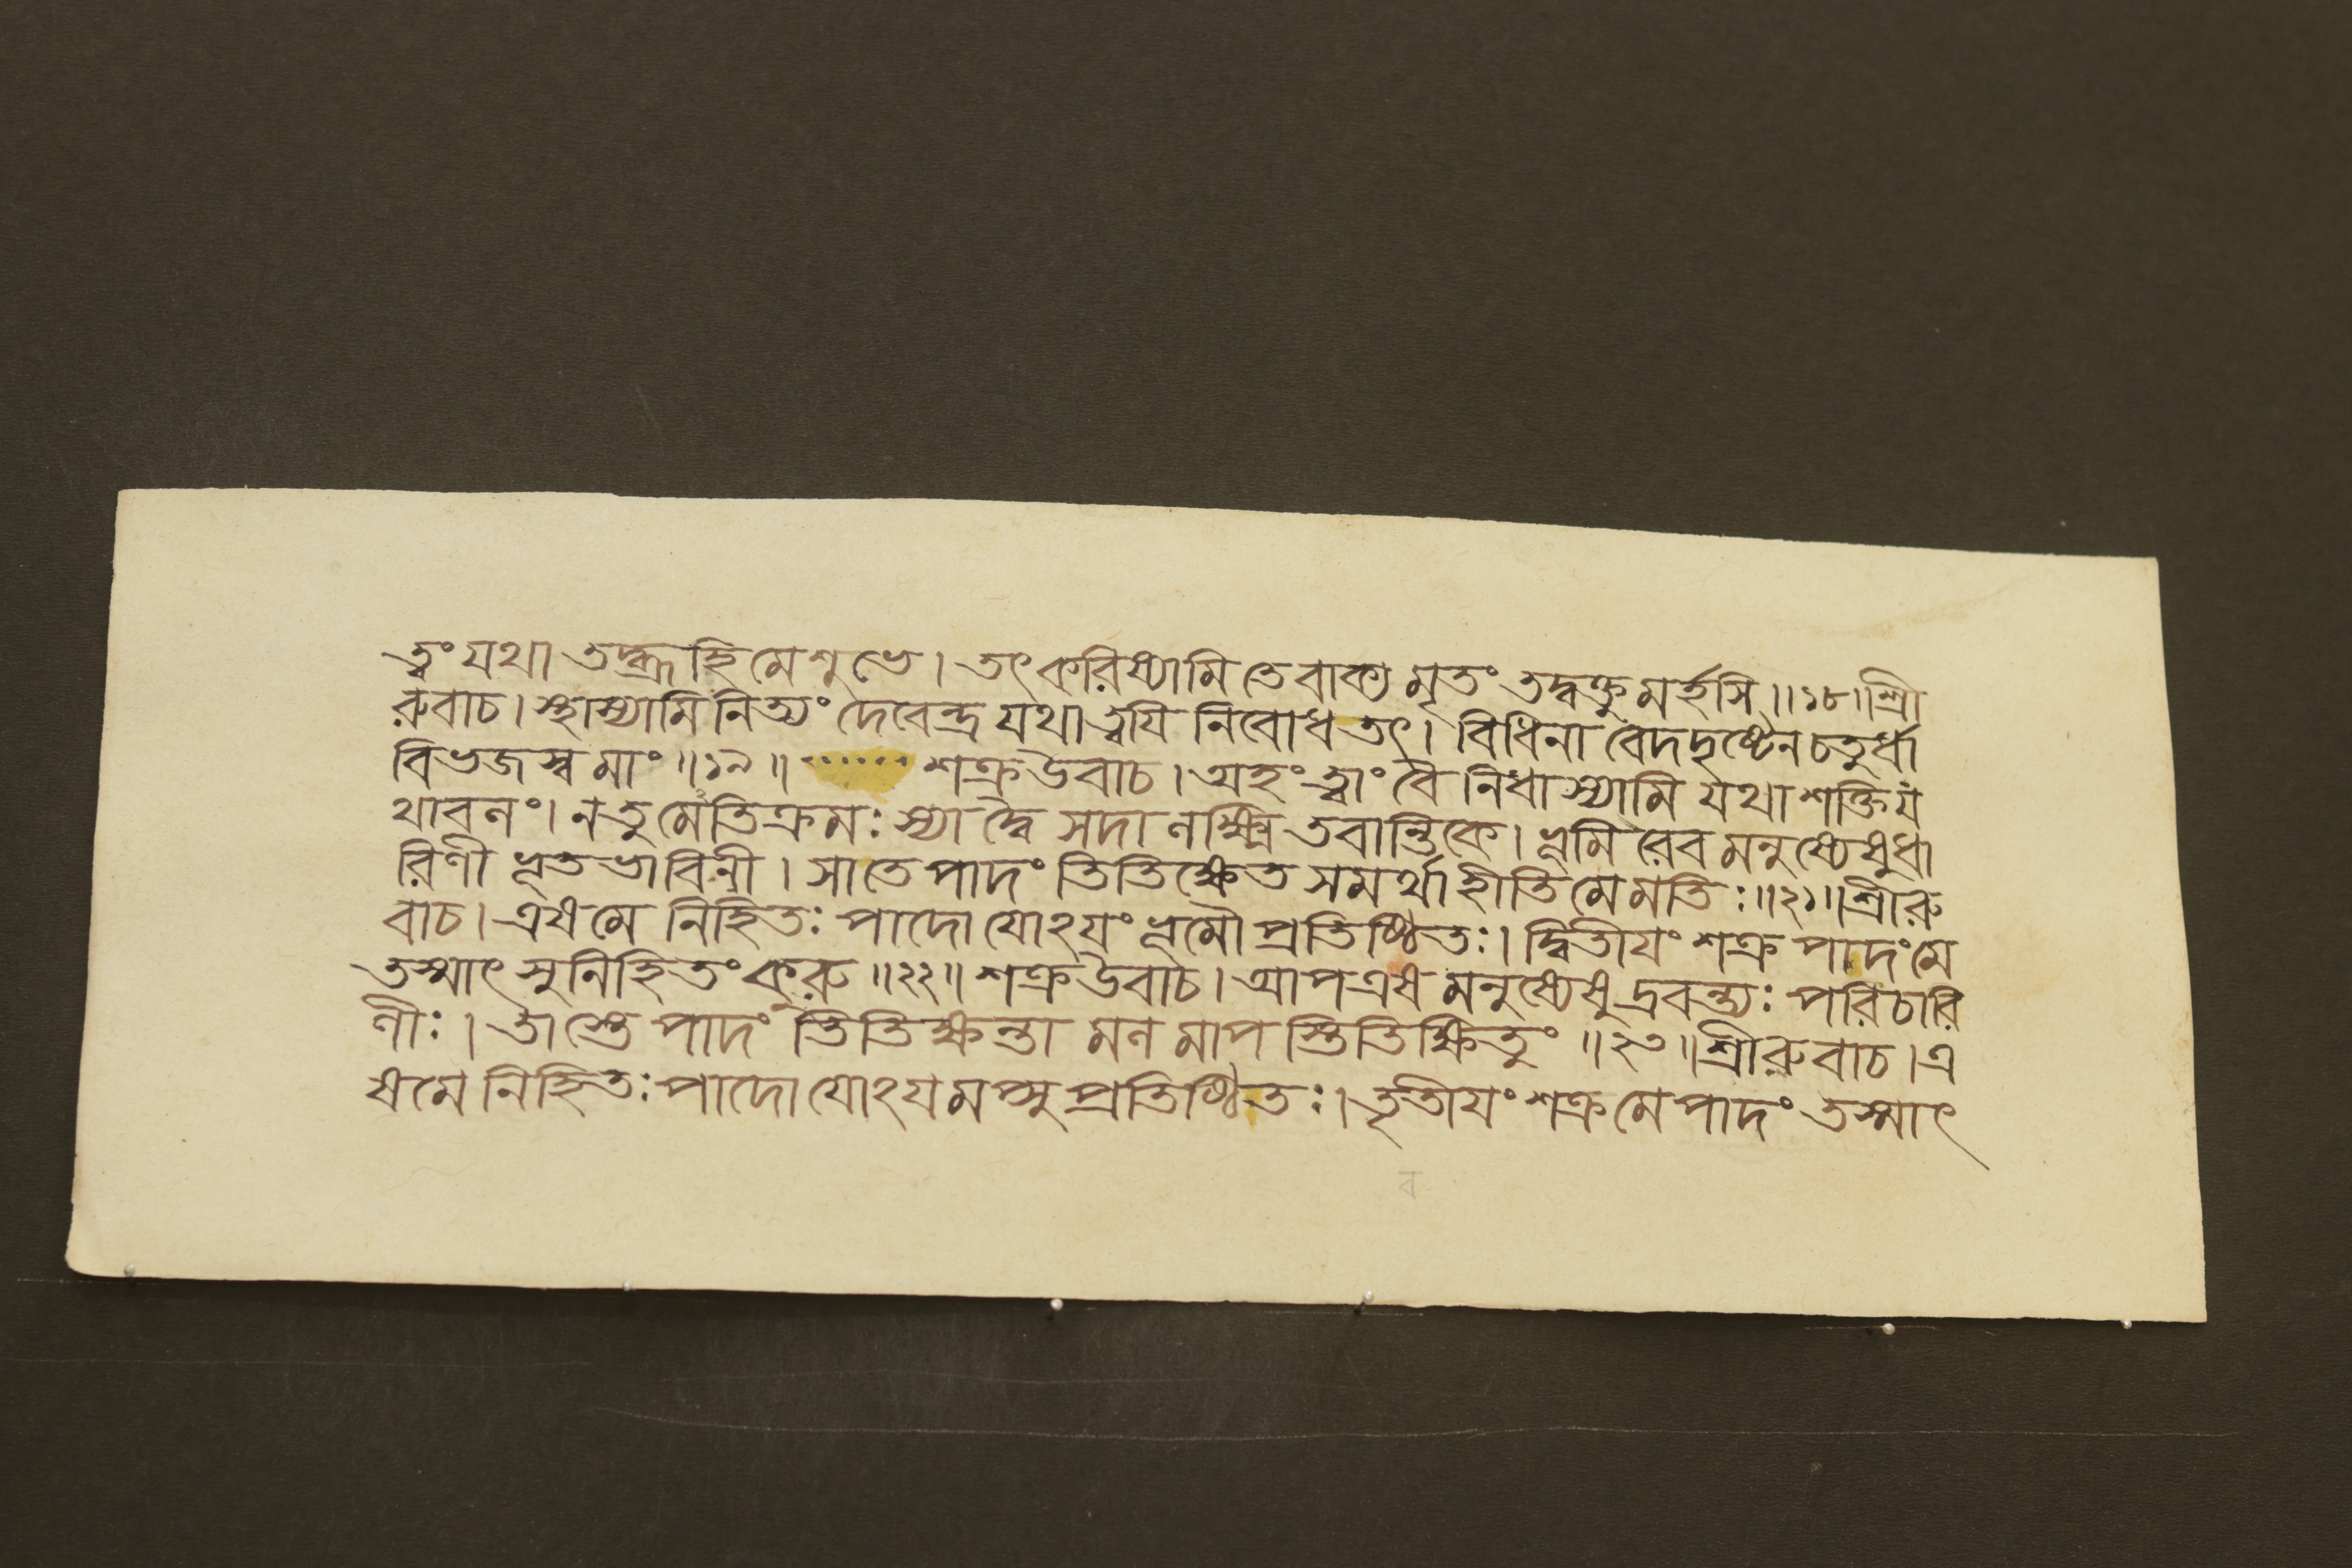 ত্বং যথা তদ্ব্রূহি মে শুভে। তৎ করিষ্যামি তে বাক্য মৃতং তদ্বক্তু মর্হসি॥১৮॥শ্রী
রুবাচ। স্থাস্যামি নিত্যং দেবেন্দ্র যথা ত্বযি নিবোধ তৎ। বিধিনা বেদদৃষ্টেন চতুর্ধা
বিভজস্ব মাং॥১৯॥ ....... শক্র উবাচ। অহং ত্বাং বৈ নিধাস্যামি যথা শক্তি য
থাবলং। ন তু মেতিক্রমঃ স্যা দ্বৈ সদা লক্ষ্মি তবান্তিকে। ভূমি রেব মনুষ্যেষু ধা
রিণী ভূত ভাবিনী। সা তে পাদং তিতিক্ষেত সমর্থা হীতি মে মতিঃ॥২১॥শ্রীরু
বাচ। এষ মে নিহিতঃ পাদো যোঽযং ভূমৌ প্রতিষ্ঠিতঃ। দ্বিতীযং শক্র পাদং মে
তস্মাৎ সুনিহিতং কুরু॥২২॥ শক্র উবাচ। আপ এব মনুষ্যেষু দ্রবন্ত্যঃ পরিচারি
ণীঃ। তা স্তে পাদং তিতিক্ষন্তা মল মাপ স্তিতিক্ষিতুং॥২৩॥শ্রীরুবাচ। এ
ষ মে নিহিতঃ পাদো যোঽয মপ্সু প্রতিষ্ঠিতঃ। তৃতীযং শক্র মে পাদং তস্মাৎ
ব